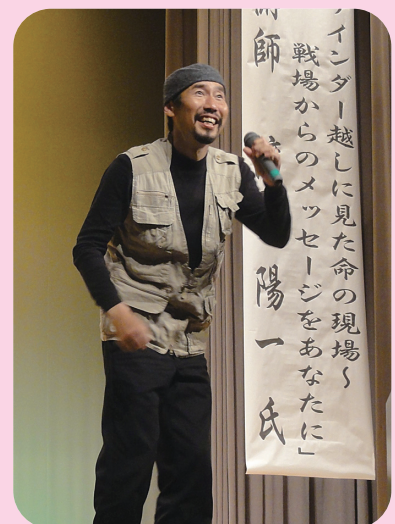 インダー越しに見た命の現場～
戦場からのメッセージをあなたに」
師 陽 一 氏